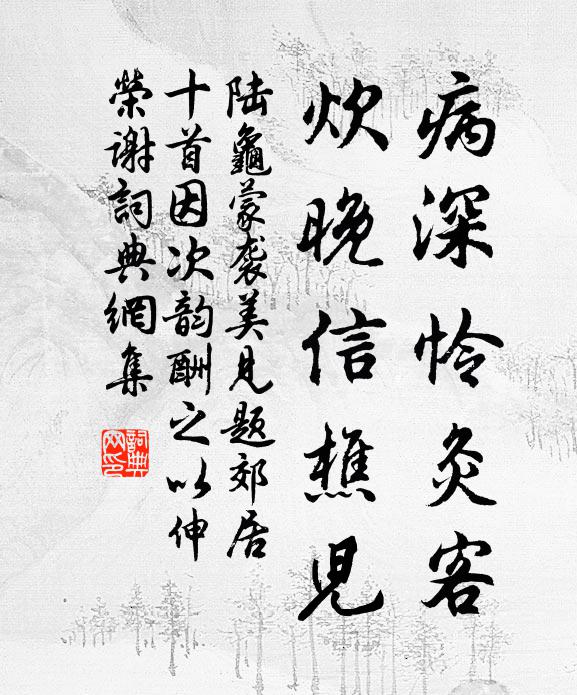 病深怜灸客
炊晚信樵兒
陆龜蒙袭美見题郊居
十首因次韵酬之以伸
榮谢詞典網集
詞典
网印